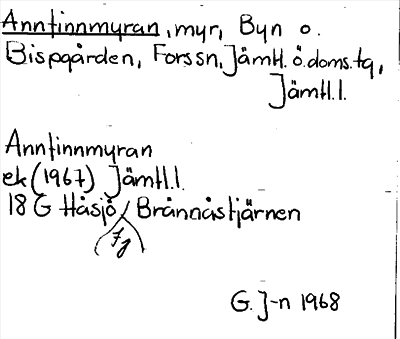 Annfinnmyran, myr, Byn o.
Bispgården, Forssn, Jämtl. ö. doms. tg,
Jämtl.l.
Annfinnmyran
ek (1967) Jämtl.l.
18 G Håsjö / Brännåstjärnen
7g
G. J-n 1968